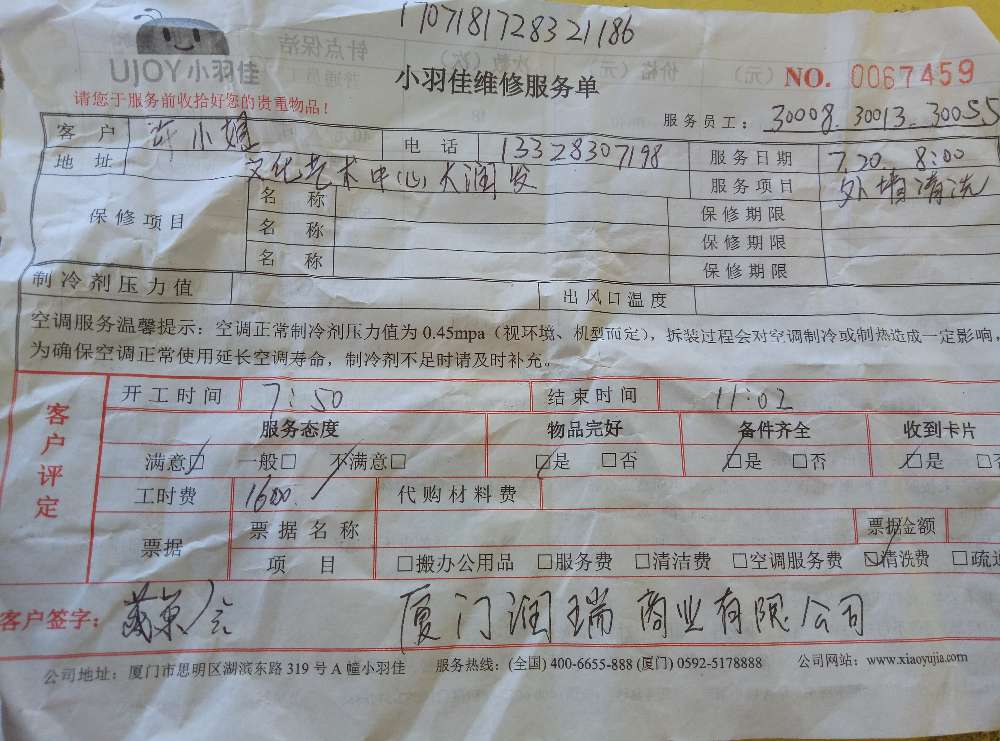 1707181728321186
UJOY小羽佳
小羽佳维修服务单
NO. 0067459
请您于服务前收拾好您的贵重物品！
服务员工：30008. 30013. 30055
客户 许小姐 电话 13328307198 服务日期 7.20. 8:00
地址 文化艺术中心大润发 服务项目 外墙清洗
保修项目 名称 保修期限
名称 保修期限
名称 保修期限
制冷剂压力值 出风口温度
空调服务温馨提示：空调正常制冷剂压力值为 0.45mpa（视环境、机型而定），拆装过程会对空调制冷或制热造成一定影响，
为确保空调正常使用延长空调寿命，制冷剂不足时请及时补充。
客户评定
开工时间 7:50 结束时间 11:02
服务态度 物品完好 备件齐全 收到卡片
满意□ 一般□ 不满意□ □是 □否 □是 □否 □是 □否
工时费 1600. 代购材料费
票据 票据名称 票据金额
项目 □搬办公用品 □服务费 □清洁费 □空调服务费 □清洗费 □疏通
客户签字： 厦门润瑞商业有限公司
公司地址：厦门市思明区湖滨东路 319 号 A 幢小羽佳 服务热线：(全国) 400-6655-888 (厦门) 0592-5178888 公司网站：www.xiaoyujia.com